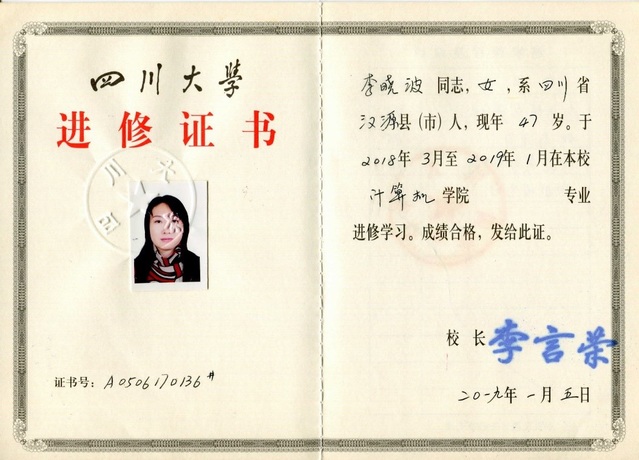 四川大学
进修证书
四川大
证书号：A0506170136#
李晓波 同志，女，系四川省
汉源县（市）人，现年 47 岁。于
2018年 3月至2019年 1月在本校
计算机 学院 专业
进修学习。成绩合格，发给此证。
校 长 李言荣
二〇一九年 一月 五日